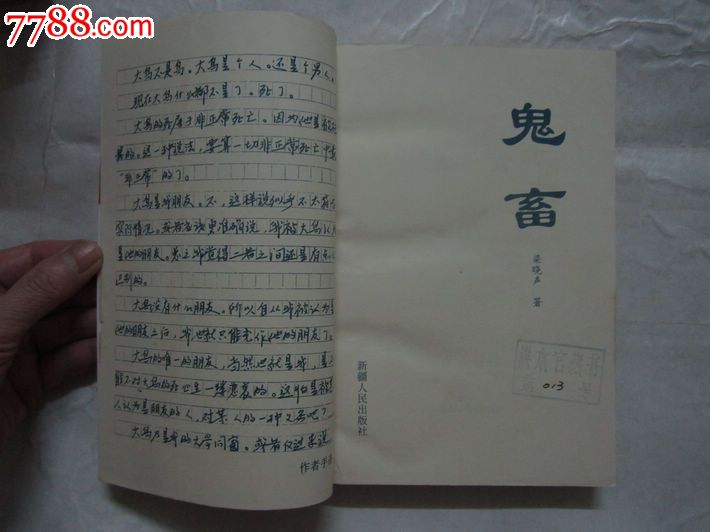 7788.com
大鸟不是鸟。大鸟是个人。还是个男人。
现在大鸟什么都不是了。死了。
大鸟的死属于非正常死亡。因为他是被
的。这一种说法，要算一切非正常死亡中
"非正常"的了。
大鸟是我朋友。不，这样说似乎不太符
实际情况。或者应该更准确说，我被大鸟认
是他的朋友。总之我觉得二者之间还是有
区别的。
大鸟没有什么朋友。所以自从我被认为是
他的朋友之后，我也就只能充作他的朋友了。
大鸟的唯一的朋友，当然也就是我，是
能不对大鸟的死四是一缕悲哀的。这怕是被
人认为是朋友的人，对某人的一种义务吧？
大鸟乃是我的大学同窗。或者仅这来说
作者手
鬼畜
梁晓声 著
新疆人民出版社
013 号